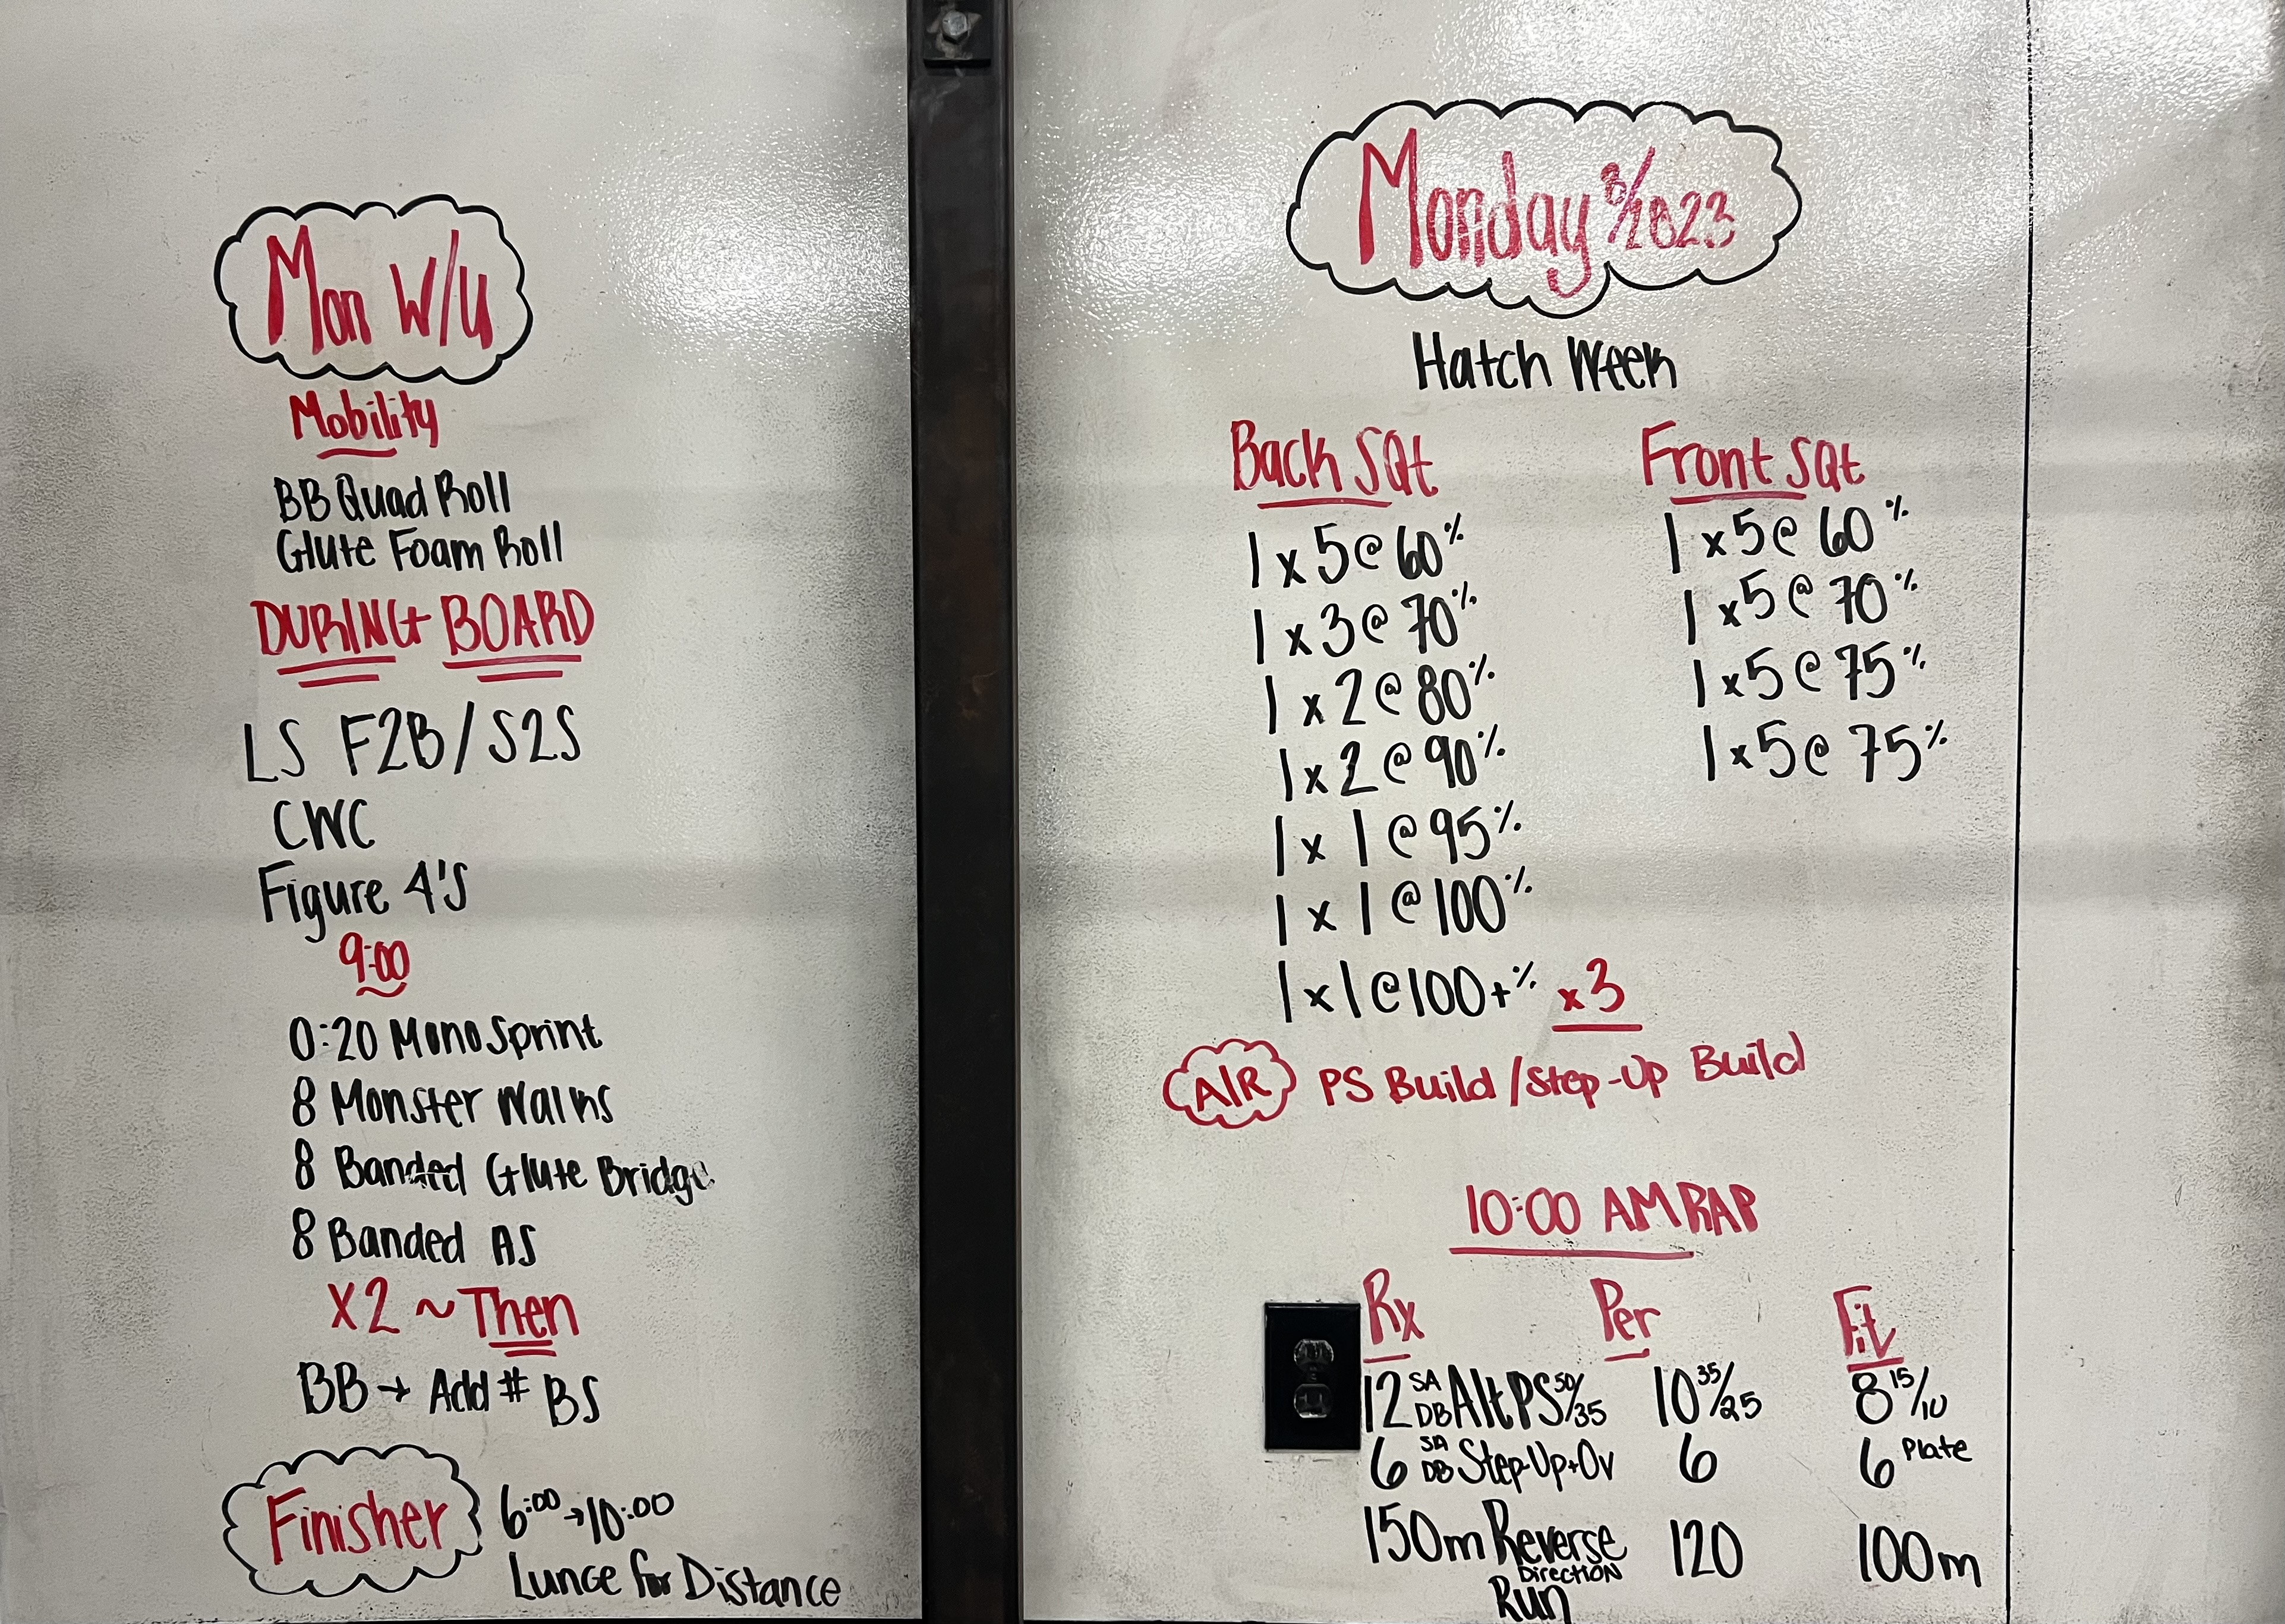 Mon W/U
Mobility
BB Quad Roll
Glute Foam Roll
DURING BOARD
LS F2B/S2S
CWC
Figure 4's
9:00
0:20 Mono Sprint
8 Monster Walks
8 Banded Glute Bridge
8 Banded AS
X2 ~ Then
BB → Add # BS
Finisher 6:00 → 10:00
Lunge for Distance
Monday 
Hatch Week
Back SQt
1 x 5 @ 60%
1 x 3 @ 70%
1 x 2 @ 80%
1 x 2 @ 90%
1 x 1 @ 95%
1 x 1 @ 100%
1 x 1 @ 100+% x3
Front SQt
1 x 5 @ 60%
1 x 5 @ 70%
1 x 5 @ 75%
1 x 5 @ 75%
A/R PS Build / Step-Up Build
10:00 AMRAP
Rx Per Fit
12 SA DB Alt PS 50/35 10 35/25 8 15/10
6 SA DB Step-Up+Ov 6 6 Plate
150m Reverse Direction Run 120 100m